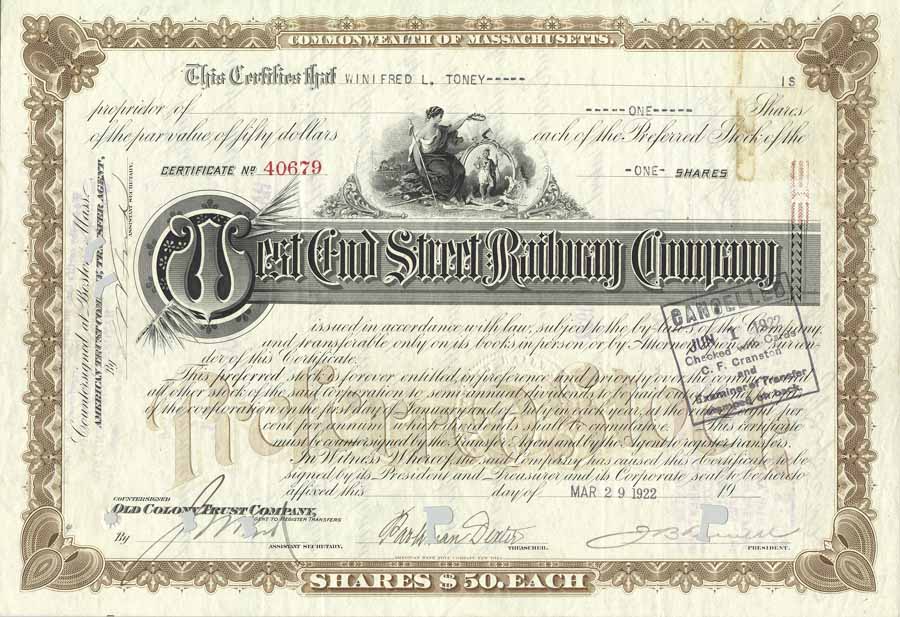 COMMONWEALTH OF MASSACHUSETTS.
This Certifies that WINIFRED L. TONEY----- IS
proprietor of -----ONE---- Shares
of the par value of fifty dollars each of the Preferred Stock of the
CERTIFICATE No 40679 -ONE- SHARES
West End Street Railway Company
issued in accordance with law, subject to the by-laws of the Company
and transferable only on its books in person or by Attorney on the surren-
der of this Certificate.
This preferred stock is forever entitled, in preference and priority over the common
all other stock of the said Corporation to semi-annual Dividends to be paid
of the corporation on the first day of January and July in each year, at the per
cent per annum which dividends shall be cumulative. This certificate
must be countersigned by the Transfer Agent and by the Agent to register transfers.
In Witness Whereof, the said Company has caused this Certificate to be
signed by its President and Treasurer and its Corporate seal to be hereto
affixed this day of MAR 29 1922 19
Countersigned at Boston, Mass.
AMERICAN TRUST TRANSFER AGENT,
By
ASSISTANT SECRETARY.
CANCELLED
JUN 1 1922
Checked with Cards
C. F. Cranston
and
Examiner of Transfer
stamped on back
COUNTERSIGNED
OLD COLONY TRUST COMPANY,
AGENT TO REGISTER TRANSFERS
By
ASSISTANT SECRETARY.
Parkman Dexter
TREASURER.
PRESIDENT.
AMERICAN BANK NOTE COMPANY NEW YORK
SHARES $50. EACH